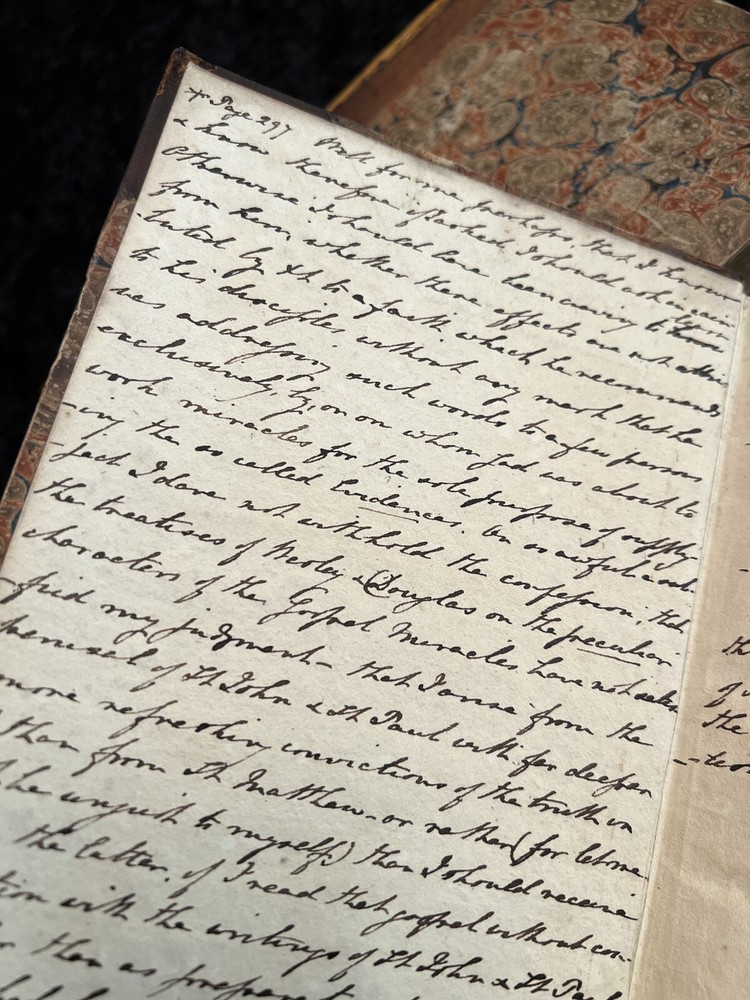 * Page 297 Well for me perhaps, that I know
& have therefore I should ask in vain
Otherwise I should have been craving to learn
from him, whether these effects are not attri-
-buted by St to a faith which he recommends
to his disciples, without any mark that he
was addressing such words to a few persons
exclusively, by, or on whom God was about to
work miracles for the sole purpose of supply-
-ing the so called Evidences. On so awful a sub-
-ject I dare not withhold the confession, that
the treatises of & Douglas on the peculiar
characters of the Gospel Miracles have not satis-
-fied my judgment – that I arise from the
perusal of St John & St Paul with far deeper
more refreshing convictions of the truth in
than from St Matthew – or rather (for let me
be unjust to myself) than I should receive
the latter, if I read that gospel without con-
tion with the writings of St John & St Paul
than as preparat
th
of
the
-tion